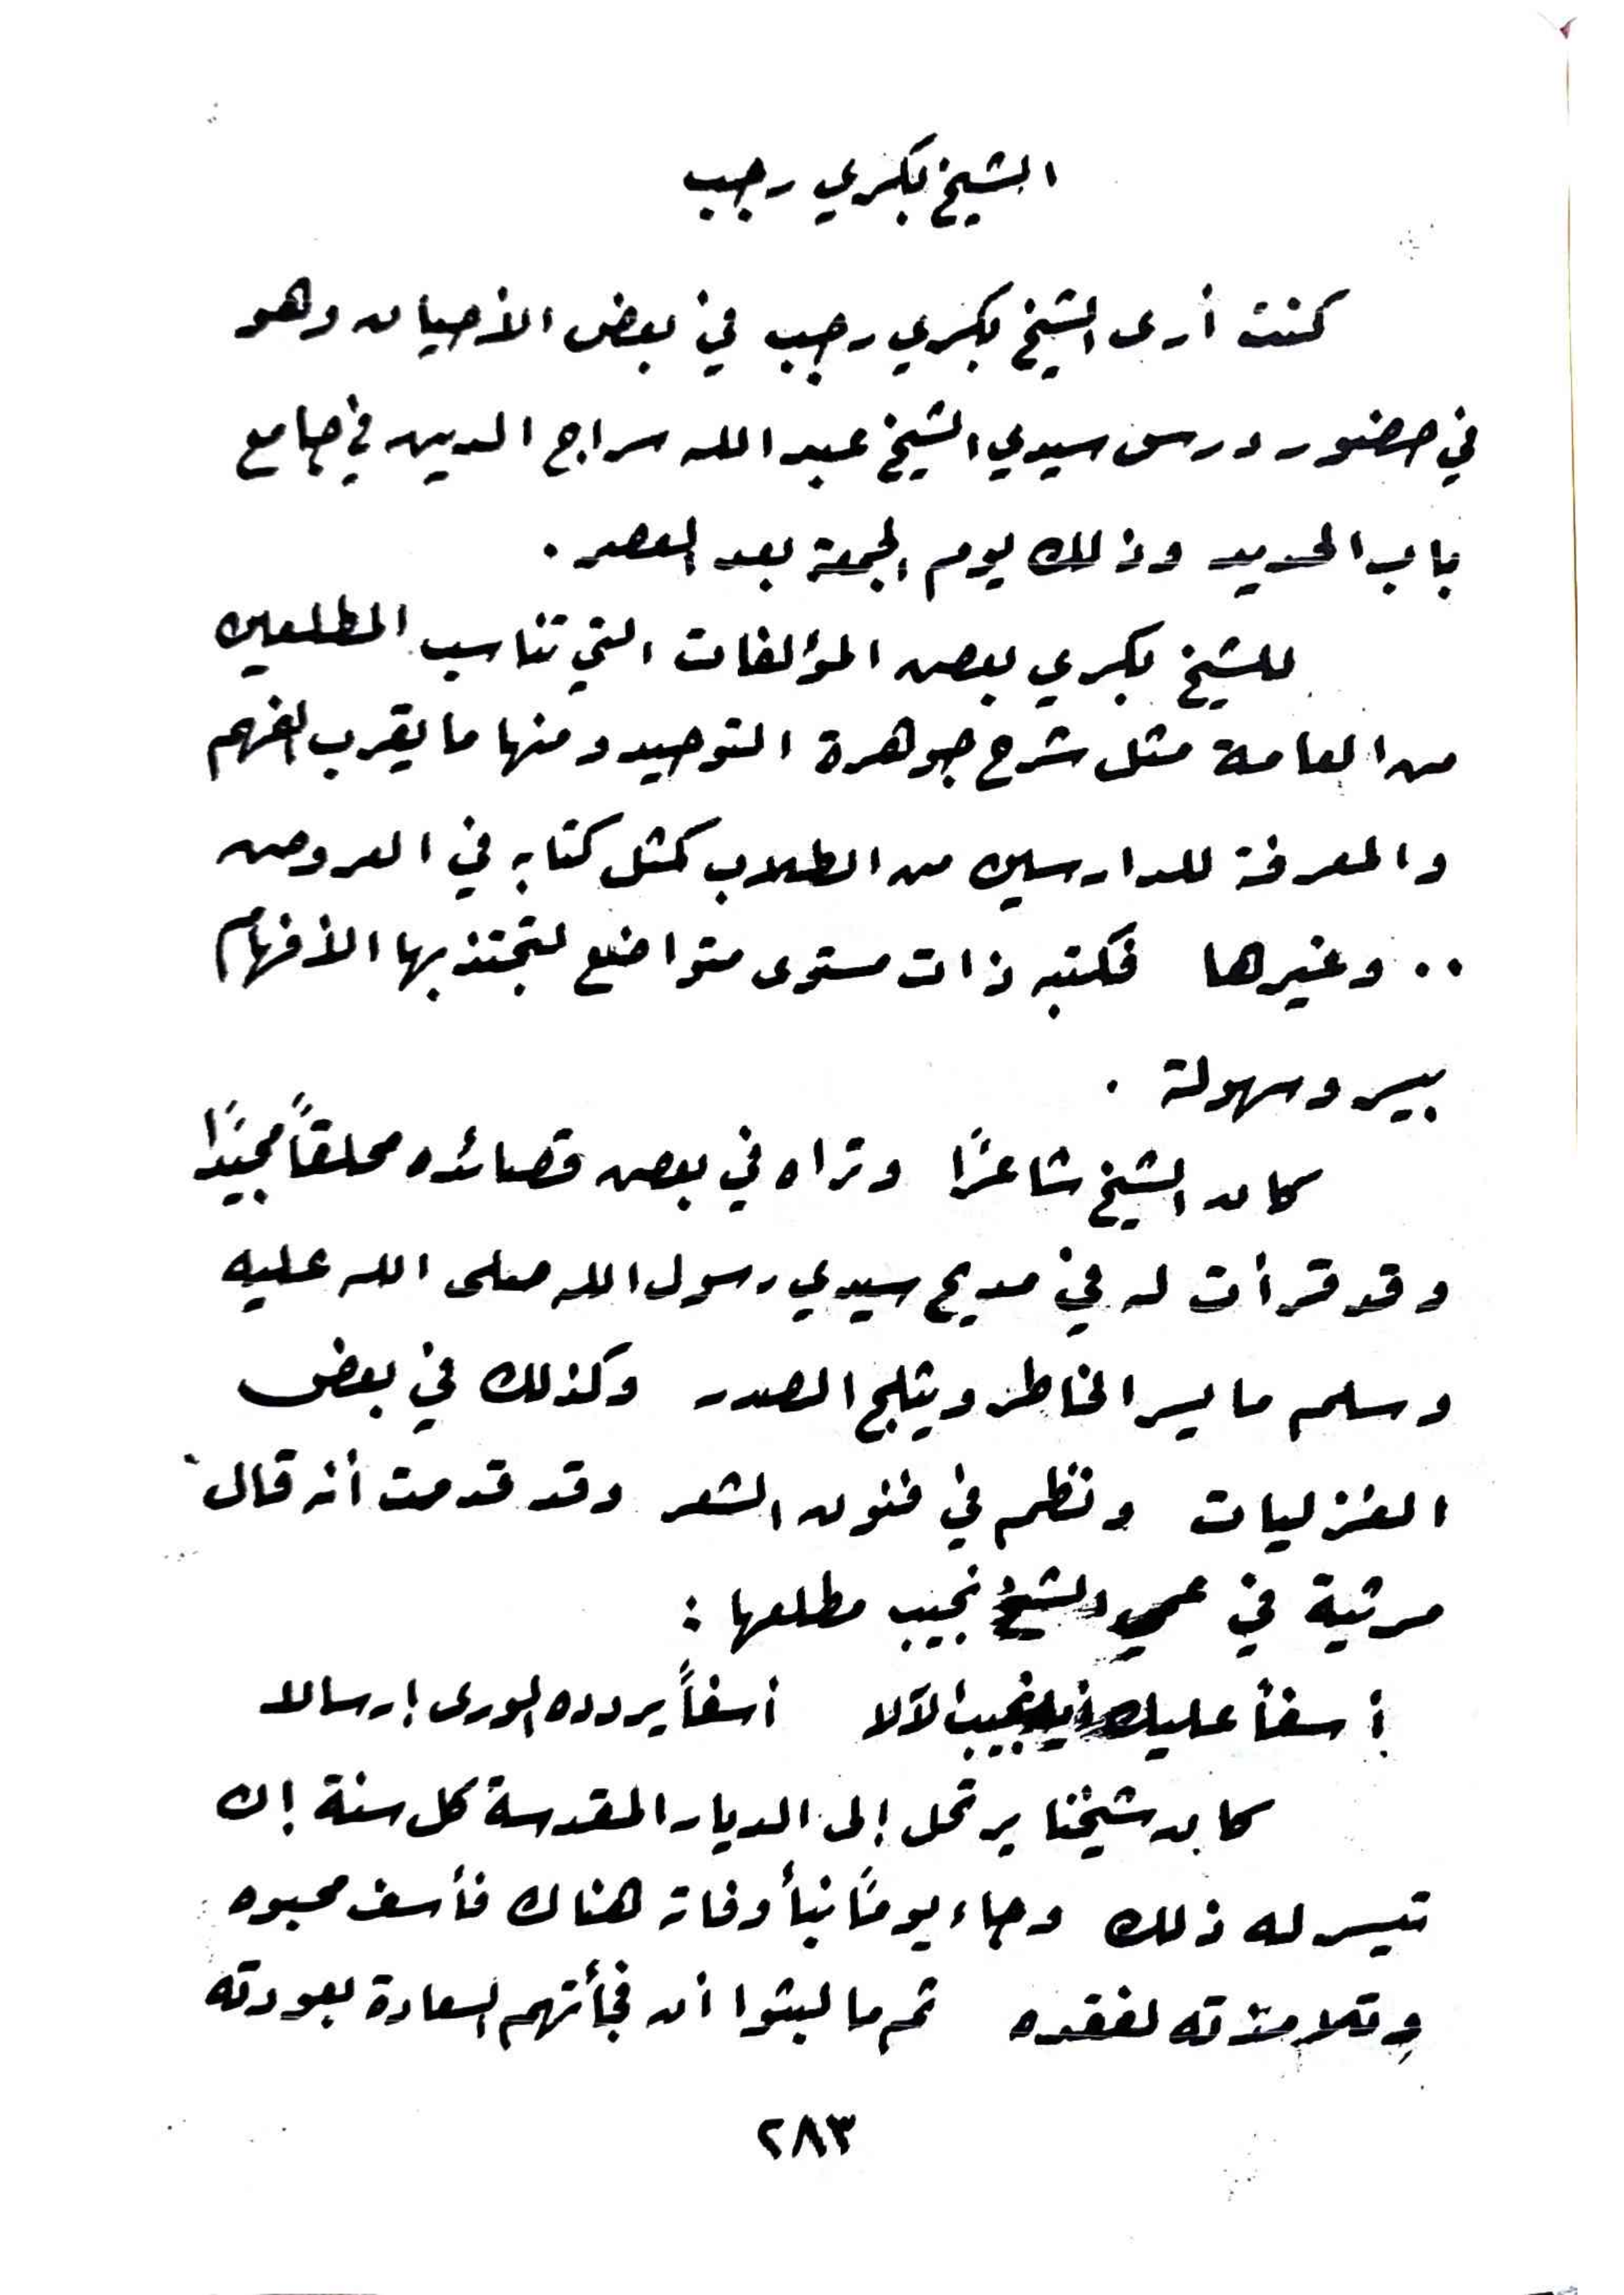 الشيخ بكري رجب
كنت أرى الشيخ بكري رجب في بعض الأحيان وهو
في حضور درس سيدي الشيخ عبد الله سراج الدين في جامع
باب الحديد وذلك يوم الجمعة بعد العصر .
للشيخ بكري بعض المؤلفات التي تناسب المطلعين
من العامة مثل شرح جوهرة التوحيد ومنها ما يقرب الفهم
والمعرفة للدارسين من الطلاب كمثل كتابه في العروض
.. وغيرها فكتبه ذات مستوى متواضع لتجتذبها الأفهام
بيسر وسهولة .
كان الشيخ شاعرًا وتراه في بعض قصائده محلقاً مجيدًا
وقد قرأت له في مديح سيدي رسول الله صلى الله عليه
وسلم ما يسر الخاطر ويثلج الصدر وكذلك في بعض
الغزليات ونظم في فنون الشعر وقد قدمت أنه قال
مرثية في عمي الشيخ نجيب مطلعها :
أسفاً عليك نجيب الآلا أسفاً يردده الورى إرسالا
كان شيخنا يرتحل إلى الديار المقدسة كل سنة إن
تيسر له ذلك وجاء يومًا نبأ وفاته هناك فأسف محبوه
وتلامذته لفقده ثم ما لبثوا أن فجأتهم السعادة بعودته
٢٨٣